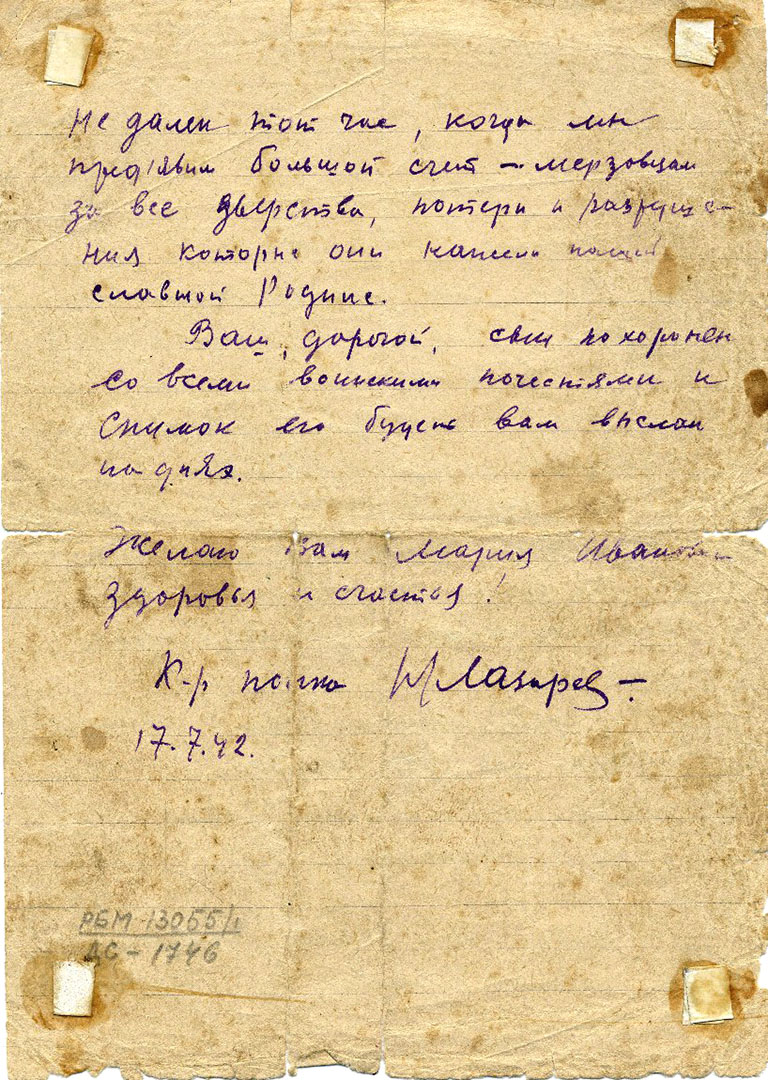 Не далек тот час, когда мы
пред'явим большой счет – мерзовцам
за все зверства, потери и разруше-
ния которые они нанесли нашей
славной Родине.
Ваш, дорогой, сын похоронен
со всеми воинскими почестями и
снимок его будет вам выслан
на днях.
Желаю Вам Мария Ивановна
здоровья и счастья!
К-р полка Лазарев
17.7.42.
РБМ 13055/1
ДС – 1746